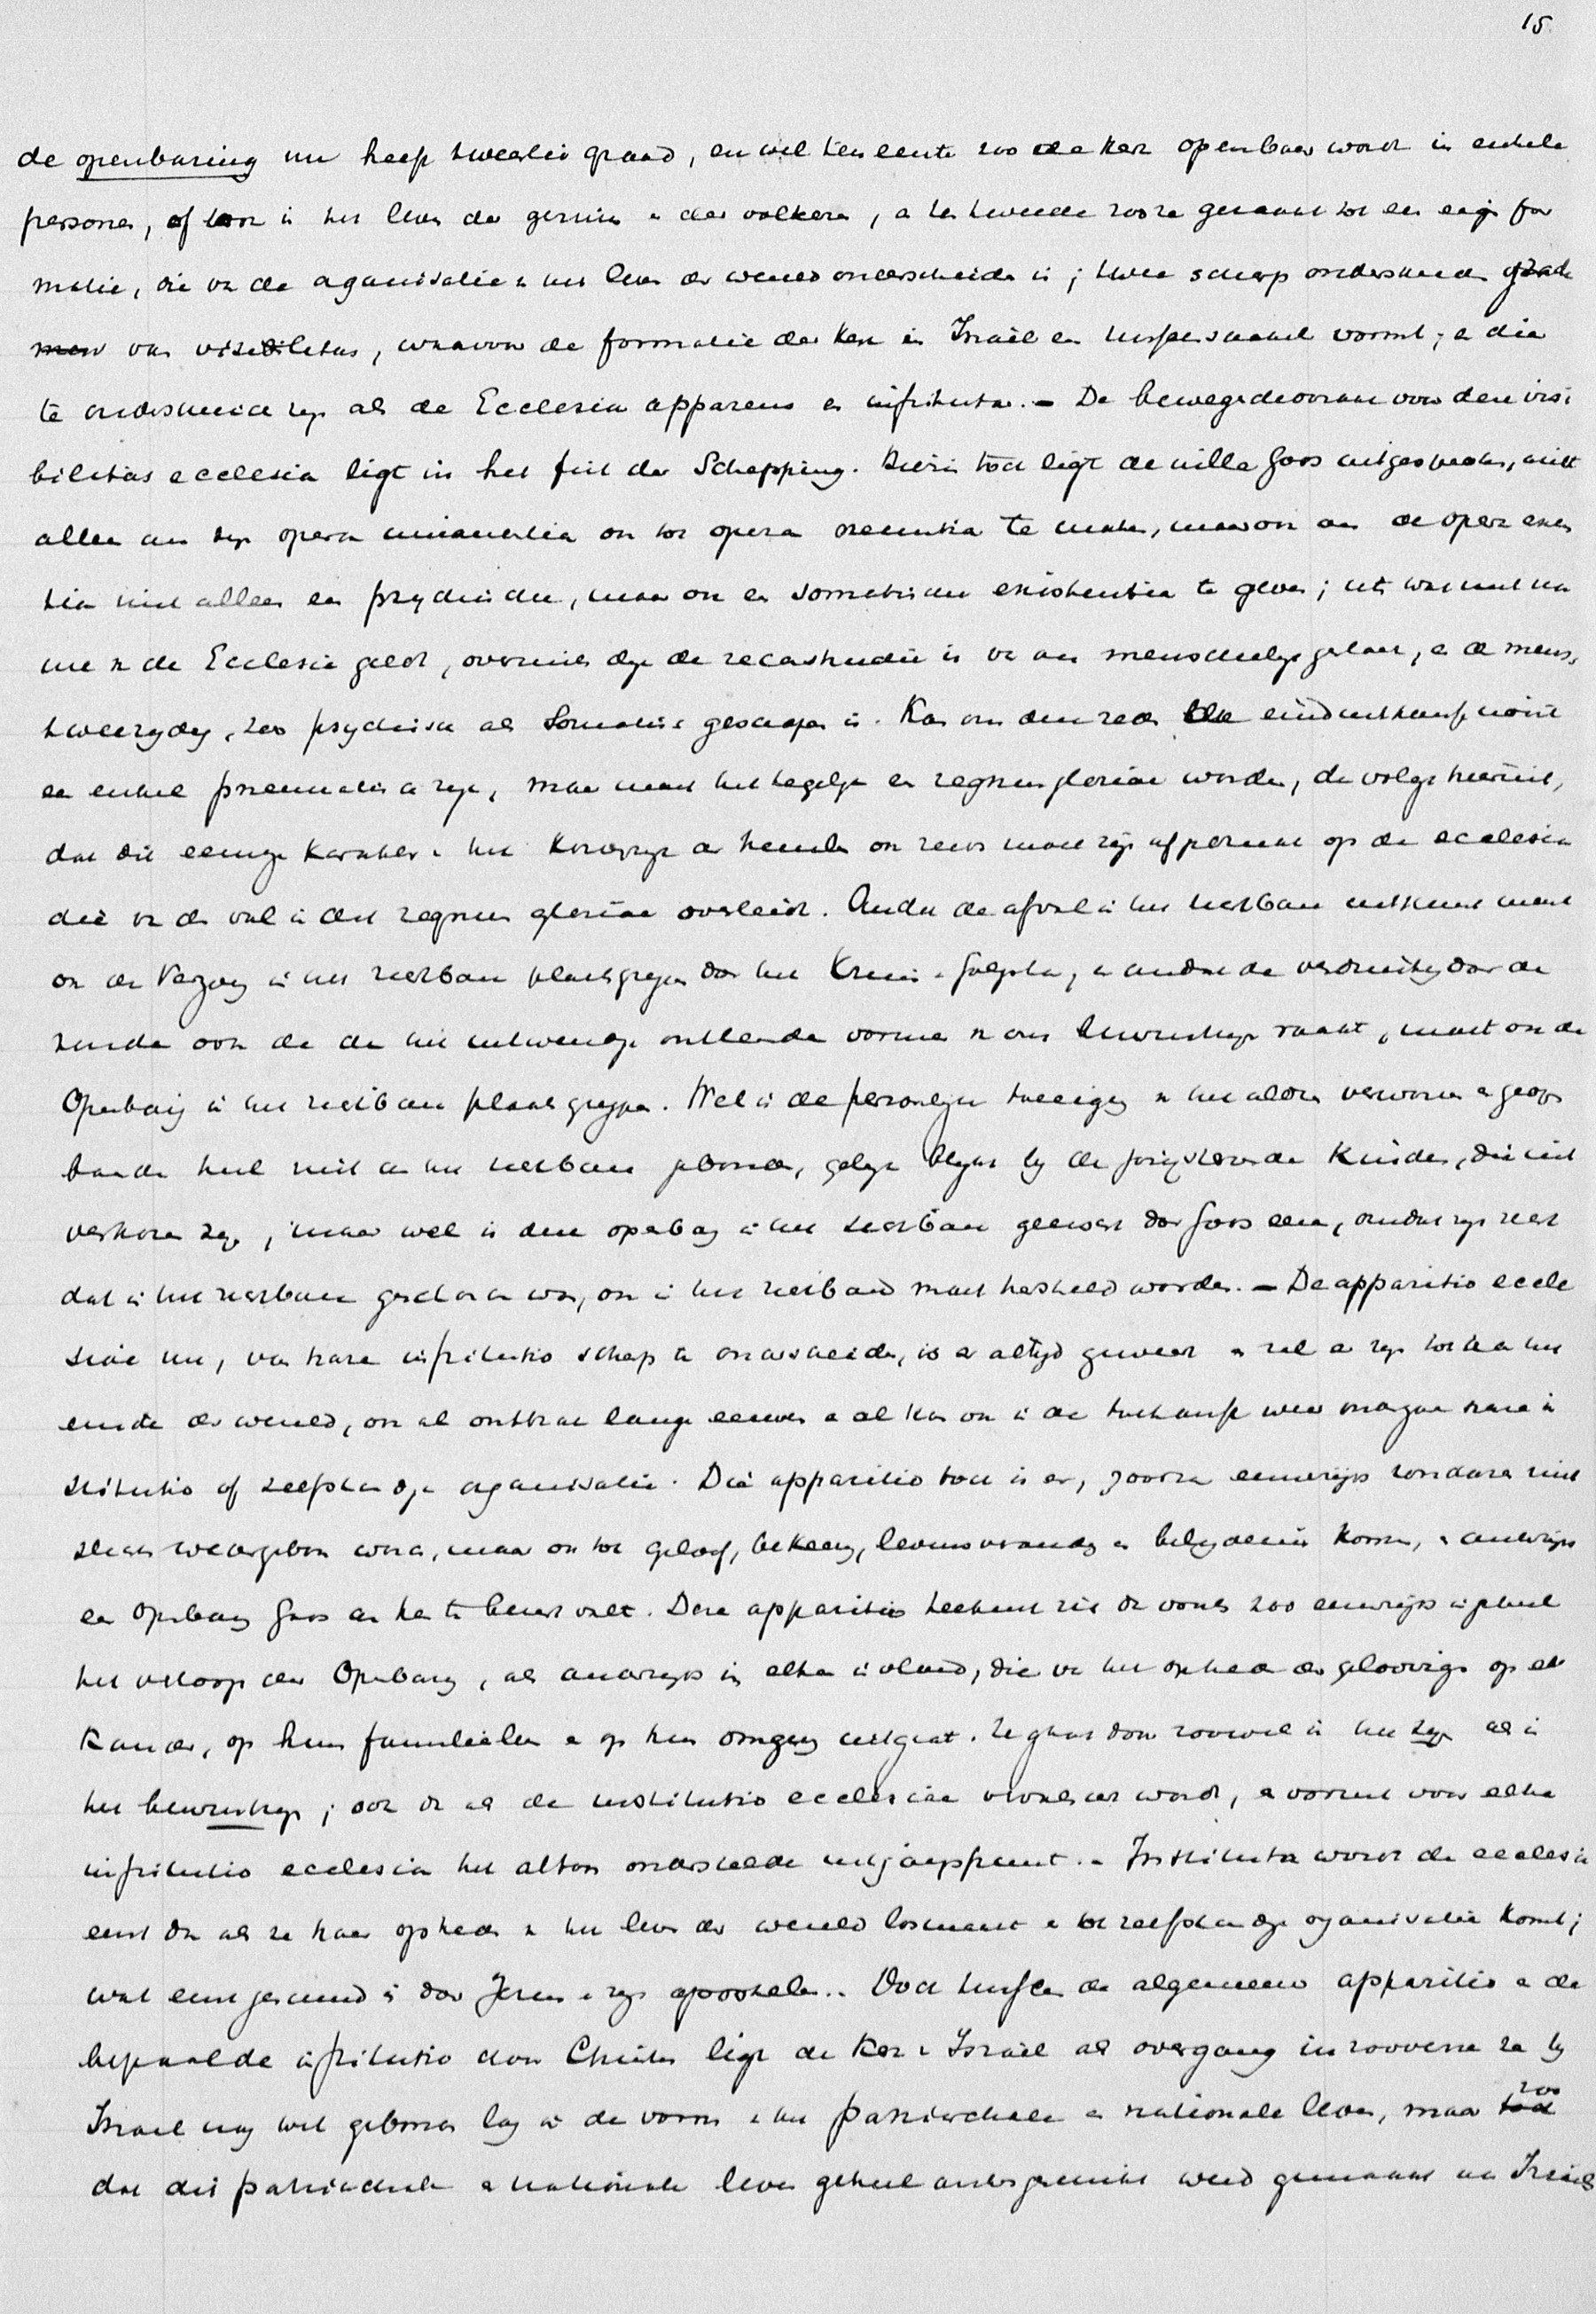 15.
de openbaring nu heeft tweeërlei graad, en wel ten eerste zoo de kerk openbaar wordt in enkele
personen, of ook in het leven der gezinnen en der volkeren, en ten tweede zoo ze geraakt tot een eigen for
matie, die van de organisatie in het leven der wereld onderscheiden is; twee scherp onderscheiden graden
van visibilitas, waarvan de formatie der Kerk in Israël en tusschenschakel vormt; en die
te onderscheiden zijn als de Ecclesia apparens en instituta. – De bewegende oorzaak voor deze visi
bilitas ecclesiae ligt in het feit der Schepping. Hierin toch ligt de wille Gods uitgesproken, niet
alleen om zijn opera immanentia ook tot opera exeuntia te maken, maar ook om de opera exeun
tia niet alleen een psychische, maar ook een somatische existentia te geven; iets wat met na
me van de Ecclesia geldt, overmits zij de reconstructie is van ons menschelijk geslacht, en de mensch
tweezijdig, zoo psychisch als somatisch geschapen is. Kan om deze reden de einduitkomst nooit
een enkel pneumatische zijn, maar moet het tegelijk een regnum gloriae worden, dan volgt hieruit,
dat dit eeuwige karakter van het Koninkrijk der hemelen ook reeds moet zijn afgeprent op de ecclesia
die van den val in dat regnum gloriae overleidt. Omdat de afval in het zichtbare uitkwam moest
ook de Verzoening in het zichtbare plaatsgrijpen door het Kruis van Golgotha, en omdat de verduistering door de
zonde ook de in het uitwendige ontleende vormen van ons bewustzijn raakt, moest ook de
Openbaring in het zichtbare plaats grijpen. Wel is de persoonlijke toeëigening van het aldus verworven en geopen
baarde heil niet aan het zichtbare gebonden, gelijk blijkt bij de jongstervende kinderen, die uit
verkoren zijn, maar wel is deze openbaring in het zichtbare geeischt door Gods eer, omdat zijn recht
dat in het zichtbare geschonden was, ook in het zichtbare moest hersteld worden. – De apparitio eccle
siae nu, van hare institutio scherp te onderscheiden, is er altijd geweest en zal er zijn tot aan het
einde der wereld, ook al ontbrak lange eeuwen en al kan ook in de toekomst weer ondergaan hare in
stitutio of zelfstandige organisatie. Die apparitio toch is er, zoodra eenerzijds zondaren niet
slechts wedergeboren worden, maar ook tot geloof, bekeering, levensverandering en belijdenis komen, en anderzijds
een Openbaring Gods aan hen te beurt valt. Deze apparitio teekent zich dan ook zoo eenerzijds in geheel
het verloop der Openbaring, als anderzijds in elken invloed, die van het optreden der geloovigen op el
kander, op hun familieleden en op hun omgeving uitgaat. Ze gaat door zoowel in het zijn als in
het bewustzijn; ook dan als de institutio ecclesiae verwoest wordt, en vormt voor elke
institutio ecclesiae het altoos onderstelde uitgangspunt. – Instituta wordt de ecclesia
eerst dan als ze haar optreden van het leven der wereld losmaakt en tot zelfstandige organisatie komt;
wat eerst geschied is door Jezus en zijn apostelen. – Doch tusschen de algemeene apparitio en de
bepaalde institutio door Christus ligt de Kerk in Israël als overgang in zooverre ze bij
Israel nog wel gebonden lag in de vorm van het patriarchale en nationale leven, maar zoo
dat dit patriarchale en nationale leven geheel anders gericht werd gemaakt aan Israels